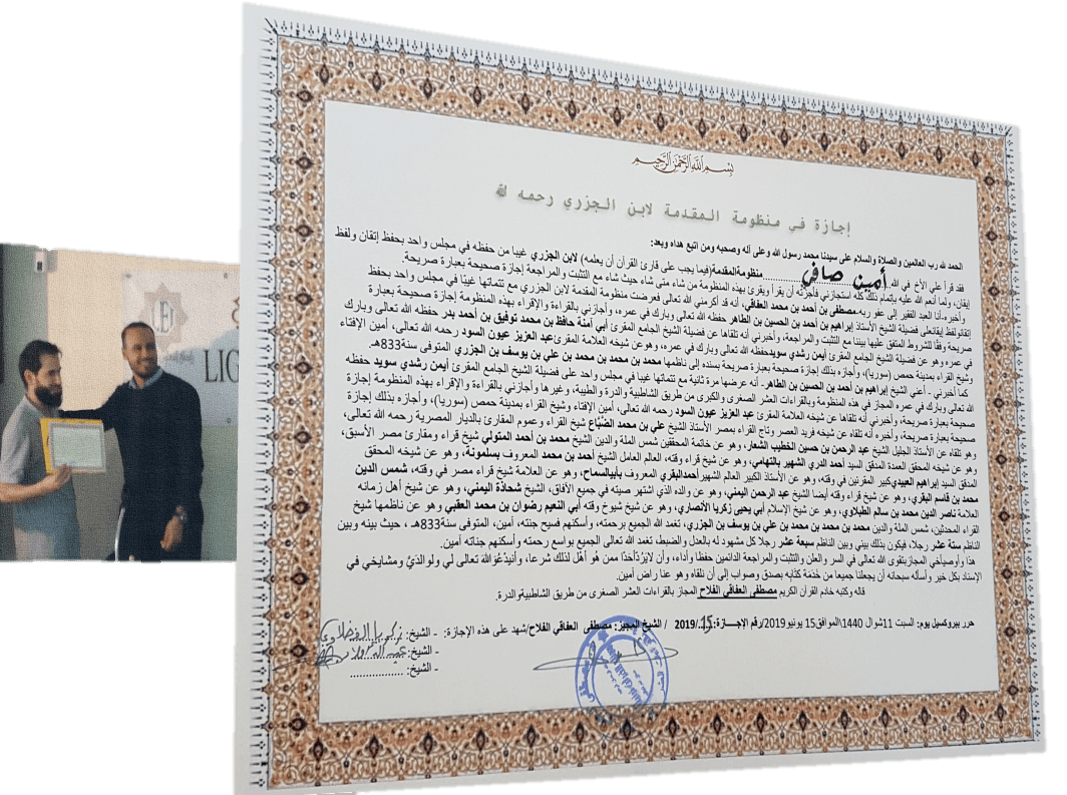 بسم الله الرحمن الرحيم
إجازة في منظومة المقدمة لابن الجزري رحمه الله
الحمد لله رب العالمين والصلاة والسلام على سيدنا محمد رسول الله وعلى آله وصحبه ومن اتبع هداه وبعد:
فقد قرأ علي الأخ في الله أمين صافي منظومة المقدمة (فيما يجب على قارئ القرآن أن يعلمه) لابن الجزري غيبا من حفظه في مجلس واحد بحفظ إتقان ولفظ
إيقان، ولما أنعم الله عليه بإتمام ذلك كله استجازني فأجزته أن يقرأ ويقرئ بهذه المنظومة من شاء متى شاء حيث شاء مع التثبت والمراجعة إجازة صحيحة بعبارة صريحة.
وأخبره أنا العبد الفقير إلى عفو ربه مصطفى بن أحمد بن محمد العفاقي، أنه قد أكرمني الله تعالى فعرضت منظومة المقدمة لابن الجزري مع تتماتها غيبًا في مجلس واحد بحفظ
إتقان ولفظ إيقان على فضيلة الشيخ الأستاذ إبراهيم بن أحمد بن الحسين بن الطاهر حفظه الله تعالى وبارك في عمره، وأجازني بالقراءة والإقراء بهذه المنظومة إجازة صحيحة بعبارة
صريحة وفقًا للشروط المتفق عليها بيننا مع التثبت والمراجعة، وأخبرني أنه تلقاها عن فضيلة الشيخ الجامع المقرئ أبي آمنة حافظ بن محمد توفيق بن أحمد بدر حفظه الله تعالى وبارك
في عمره، وهو عن فضيلة الشيخ الجامع المقرئ أيمن رشدي سويد حفظه الله تعالى وبارك في عمره، وهو عن شيخه العلامة المقرئ عبد العزيز عيون السود رحمه الله تعالى، أمين الإفتاء
وشيخ القراء بمدينة حمص (سوريا)، وأجازه بذلك إجازة صحيحة بعبارة صريحة بسنده إلى ناظمها محمد بن محمد بن محمد بن علي بن يوسف بن الجزري المتوفى سنة 833هـ.
كما أخبرني - أعني الشيخ إبراهيم بن أحمد بن الحسين بن الطاهر - أنه عرضها مرة ثانية مع تتماتها غيبا في مجلس واحد على فضيلة الشيخ الجامع المقرئ أيمن رشدي سويد حفظه
الله تعالى وبارك في عمره المجاز في هذه المنظومة وبالقراءات العشر الصغرى والكبرى من طريق الشاطبية والدرة والطيبة، وغيرها وأجازني بالقراءة والإقراء بهذه المنظومة إجازة
صحيحة بعبارة صريحة، وأخبرني أنه تلقاها عن شيخه العلامة المقرئ عبد العزيز عيون السود رحمه الله تعالى، أمين الإفتاء وشيخ القراء بمدينة حمص (سوريا)، وأجازه بذلك إجازة
صحيحة بعبارة صريحة، وأخبره أنه تلقاه عن شيخه فريد العصر وتاج القراء بمصر الأستاذ الشيخ علي بن محمد الضباع شيخ القراء وعموم المقارئ بالديار المصرية رحمه الله تعالى،
وهو تلقاه عن الأستاذ الجليل الشيخ عبد الرحمن بن حسين الخطيب الشعار، وهو عن خاتمة المحققين شمس الملة والدين الشيخ محمد بن أحمد المتولي شيخ قراء ومقارئ مصر الأسبق،
وهو عن شيخه المحقق العمدة المدقق السيد أحمد الدري الشهير بالتهامي، وهو عن شيخ قراء وقته، العالم العامل الشيخ أحمد بن محمد المعروف بسلمونة، وهو عن شيخه المحقق
المدقق السيد إبراهيم العبيدي كبير المقرئين في وقته، وهو عن الأستاذ الكبير العالم الشهير أحمد البقري المعروف بأبي السماح، وهو عن العلامة شيخ قراء مصر في وقته، شمس الدين
محمد بن قاسم البقري، وهو عن شيخ قراء وقته أيضا الشيخ عبد الرحمن اليمني، وهو عن والده الذي اشتهر صيته في جميع الآفاق، الشيخ شحاذة اليمني، وهو عن شيخ أهل زمانه
العلامة ناصر الدين محمد بن سالم الطبلاوي، وهو عن شيخ الإسلام أبي يحيى زكريا الأنصاري، وهو عن شيخ شيوخ وقته أبي النعيم رضوان بن محمد العقبي وهو عن ناظمها شيخ
القراء المحدثين، شمس الملة والدين محمد بن محمد بن محمد بن علي بن يوسف بن الجزري، تغمد الله الجميع برحمته، وأسكنهم فسيح جنته، آمين، المتوفى سنة 833هـ، حيث بينه وبين
الناظم ستة عشر رجلا، فيكون بذلك بيني وبين الناظم سبعة عشر رجلا كل مشهود له بالعدل والضبط، تغمد الله تعالى الجميع بواسع رحمته وأسكنهم جناته آمين.
هذا وأوصي أخي المجاز بتقوى الله تعالى في السر والعلن والتثبت والمراجعة الدائمين حفظا وأداء، وأن لا يرد أحدا ممن هو أهل لذلك شرعا، وأن يدعو الله تعالى لي ولوالدي ومشايخي في
الإسناد بكل خير وأسأله سبحانه أن يجعلنا جميعا من خدمة كتابه بصدق وصواب إلى أن نلقاه وهو عنا راض آمين.
قاله وكتبه خادم القرآن الكريم مصطفى العفاقي الفلاح المجاز بالقراءات العشر الصغرى من طريق الشاطبية والدرة.
حرر ببروكسيل يوم: السبت 11 شوال 1440 الموافق 15 يونيو 2019/ رقم الإجازة: 15/2019 / الشيخ المجيز: مصطفى العفاقي الفلاح / شهد على هذه الإجازة: - الشيخ:
- الشيخ:
- الشيخ: ................
LIG